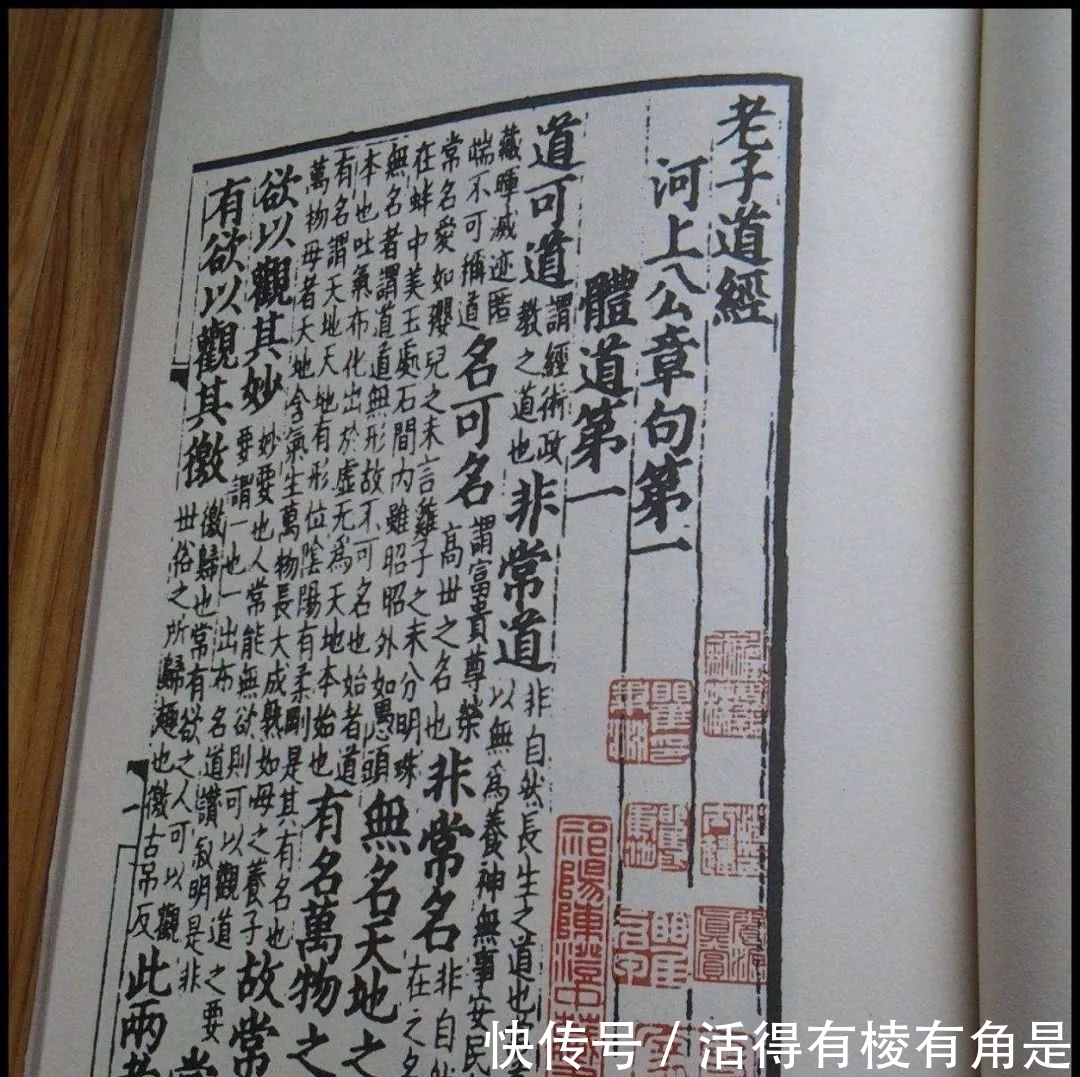 老子道經
河上公章句第一
體道第一
道可道
謂經術政
教之道也
非常道
非自然長生之道也
以無為養神無事安民
藏暉滅迹匿
端不可稱道
名可名
謂富貴尊榮
高世之名也
非常名
非自然
在之名
常名愛如嬰兒之未言雞子之未分明珠
在蚌中美玉處石間內雖昭昭外如愚頭
無名天地之
無名者謂道道無形故不可名也始者道
本也吐氣布化出於虛无為天地本始也
有名萬物之
有名謂天地天地有形位陰陽有柔剛是其有名也
萬物母者天地含氣生萬物長大成熟如母之養子
故常
欲以觀其妙
妙要也人常能無欲則可以觀道之要
要謂一也一出布名道讚叙明是非
有欲以觀其徼
徼歸也常有欲之人可以觀
世俗之所歸趣也徼古吊反
此兩者
祁陽陳澄中藏
快传号 / 活得有棱有角是